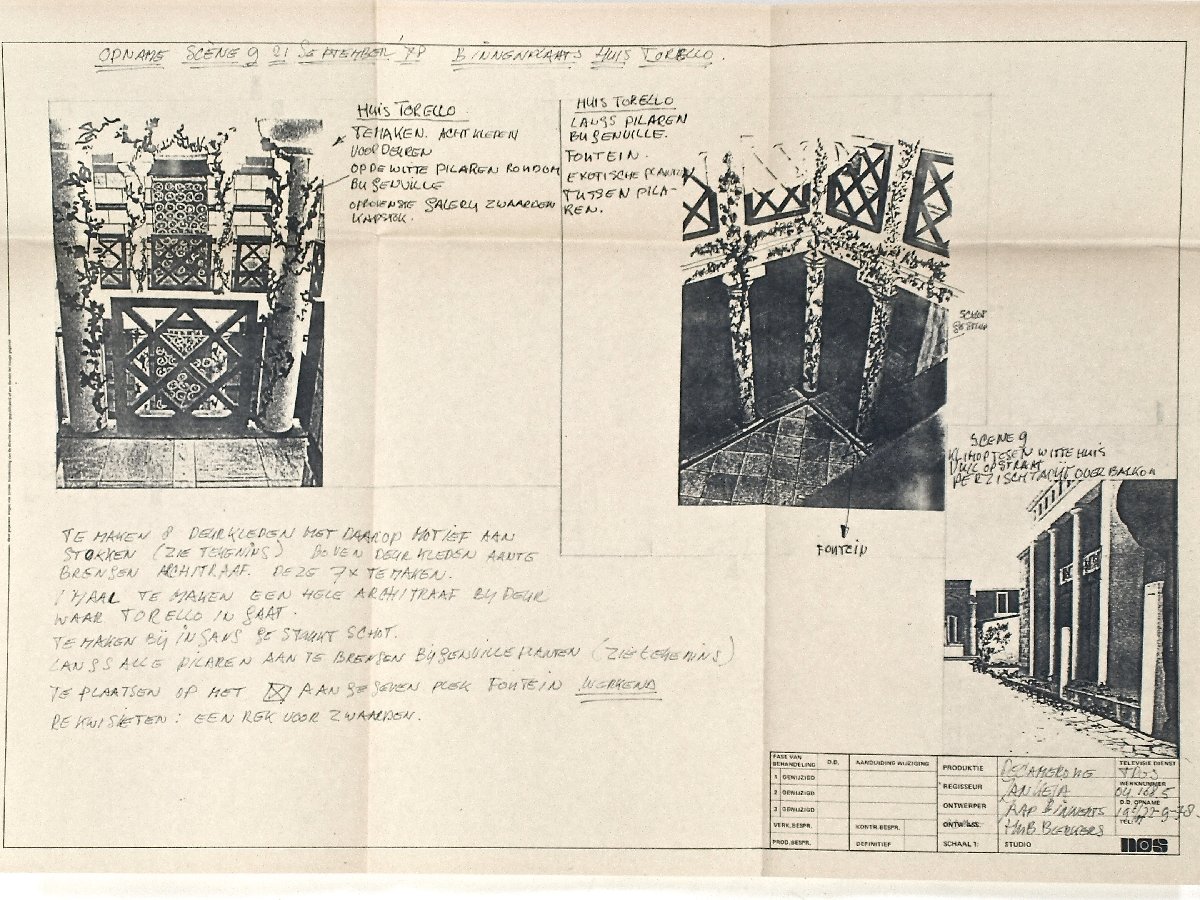 OPNAME SCÈNE 9 21 SEPTEMBER '78 BINNENPLAATS HUIS TORELLO.
HUIS TORELLO.
TEMAKEN. ACHT KLEDEN
VOOR DEUREN
OP DE WITTE PILAREN RONDOM
BUGENVILLE
GALERIJ ZWAARDEN
HUIS TORELLO
LANGS PILAREN
BUGENVILLE.
FONTEIN.
EXOTISCHE PLANTEN
TUSSEN PILA-
REN.
SCHOT
FONTEIN
SCENE 9
KLIMOP TEGEN WITTE HUIS
OP STRAAT
PERZISCH TAPIJT OVER BALKON
TE MAKEN 8 DEURKLEDEN MET DAAROP MOTIEF AAN
STOKKEN (ZIE TEKENING) BOVEN DEURKLEDEN AANTE
BRENGEN ARCHITRAAF. DEZE 7X TE MAKEN.
1 MAAL TE MAKEN EEN HELE ARCHITRAAF BIJ DEUR
WAAR TORELLO IN GAAT.
TE MAKEN BIJ INGANG SCHOT.
LANGS ALLE PILAREN AAN TE BRENGEN BUGENVILLEPLANTEN (ZIE TEKENING)
TE PLAATSEN OP MET AANGEGEVEN PLEK FONTEIN WERKEND
REKWISIETEN: EEN REK VOOR ZWAARDEN.
FASE VAN BEHANDELING D.D. AANDUIDING WIJZIGING
1 GEWIJZIGD
2 GEWIJZIGD
3 GEWIJZIGD
VERK.BESPR. KONTR.BESPR.
PROD.BESPR. DEFINITIEF
PRODUKTIE DECAMERONE
REGISSEUR
ONTWERPER JAAP BINNERTS
ONTW.ASS. HUB BERKERS
SCHAAL 1: STUDIO
TELEVISIE DIENST
TROS
WERKNUMMER
D.D. OPNAME
TEL:
nos